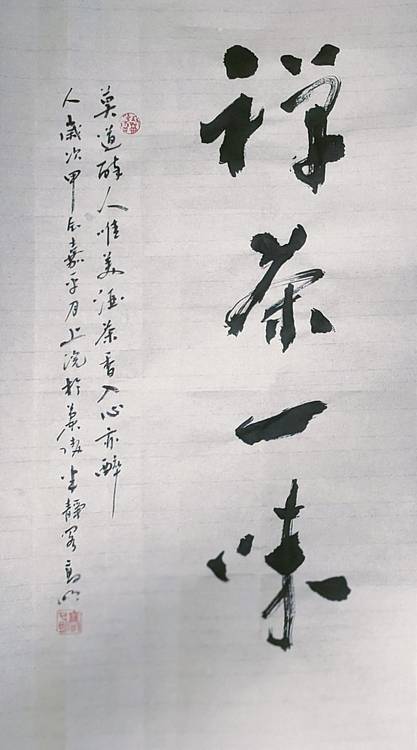 禅茶一味
莫道醉人唯美酒茶香入心亦醉
人歲次甲辰嘉平月上浣於
坐靜